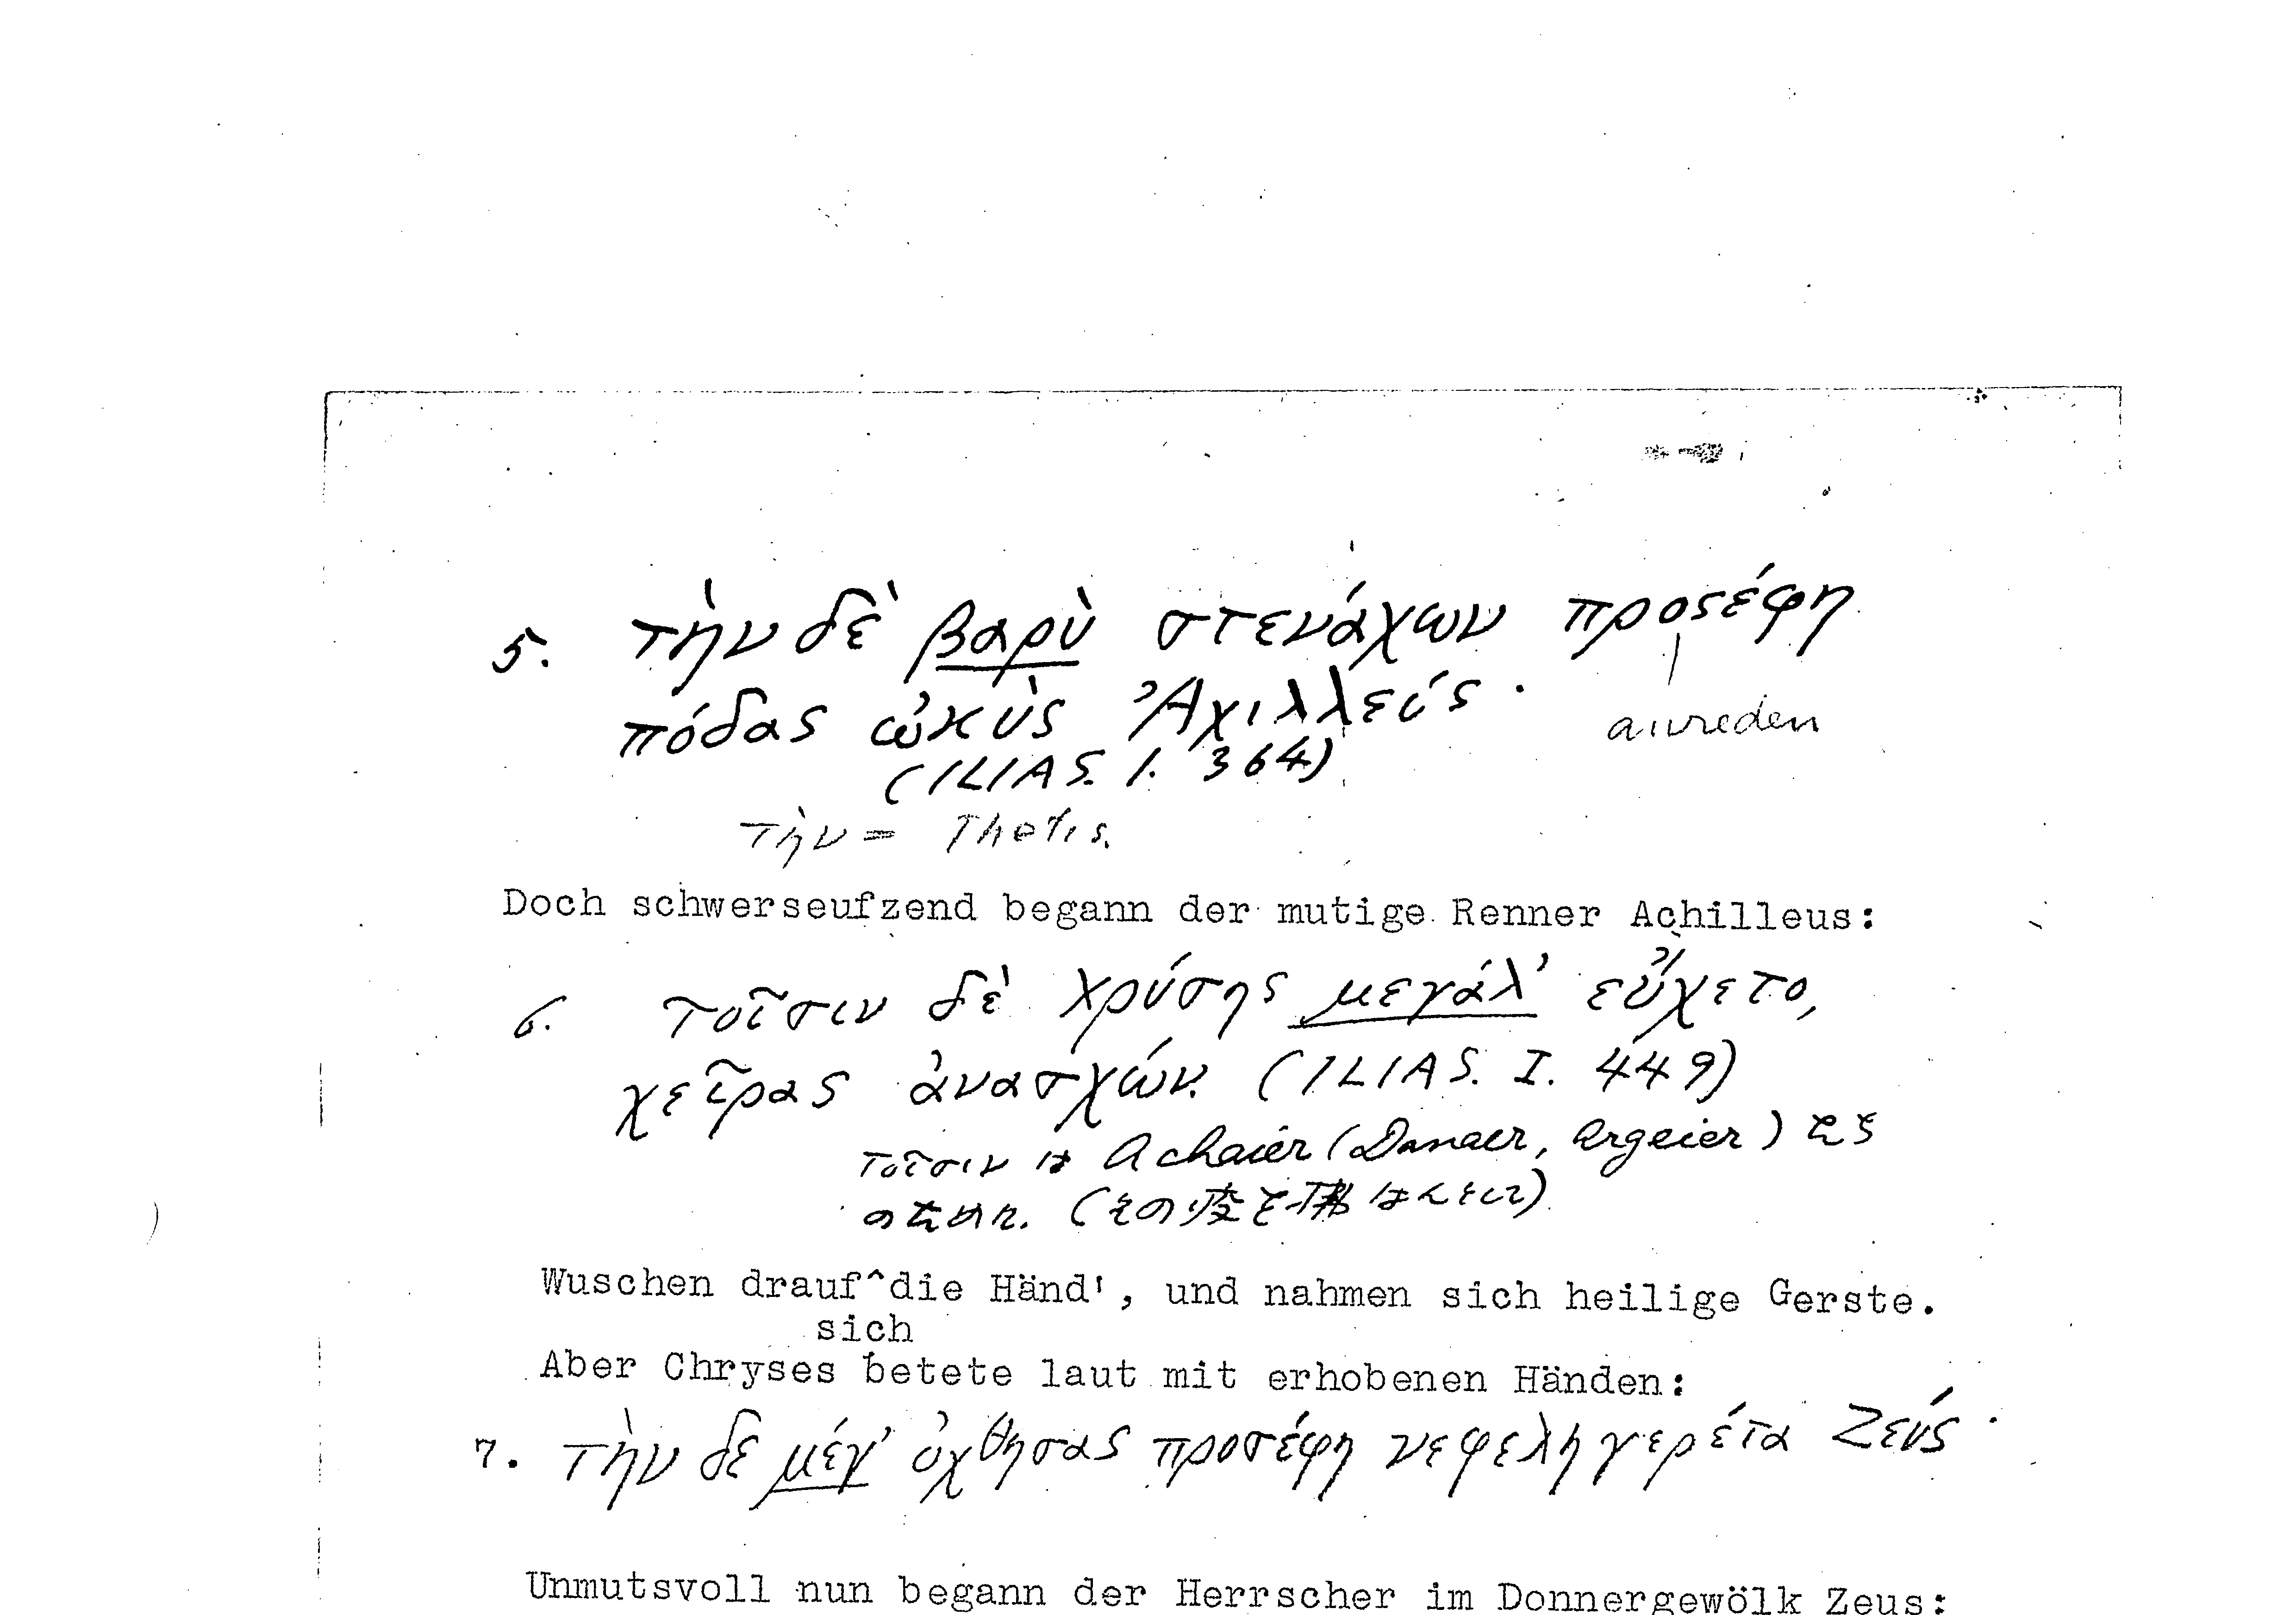 5. τὴν δὲ βαρὺ στενάχων προσέφη
πόδας ὠκὺς Ἀχιλλεύς·
anreden
(ILIAS. I. 364)
τὴν = Thetis.
Doch schwerseufzend begann der mutige Renner Achilleus:
6. τοῖσιν δὲ Χρύσης μεγάλ' εὔχετο,
χεῖρας ἀνασχών. (ILIAS. I. 449)
τοῖσιν は Achaier (Danaer, Argeier) たち
のために. (その疫を
Wuschen drauf^die Händ', und nahmen sich heilige Gerste.
sich
Aber Chryses betete laut mit erhobenen Händen:
7. τὴν δε μέγ' ὀχθησας προσέφη νεφεληγερέτα Ζεύς·
Unmutsvoll nun begann der Herrscher im Donnergewölk Zeus: